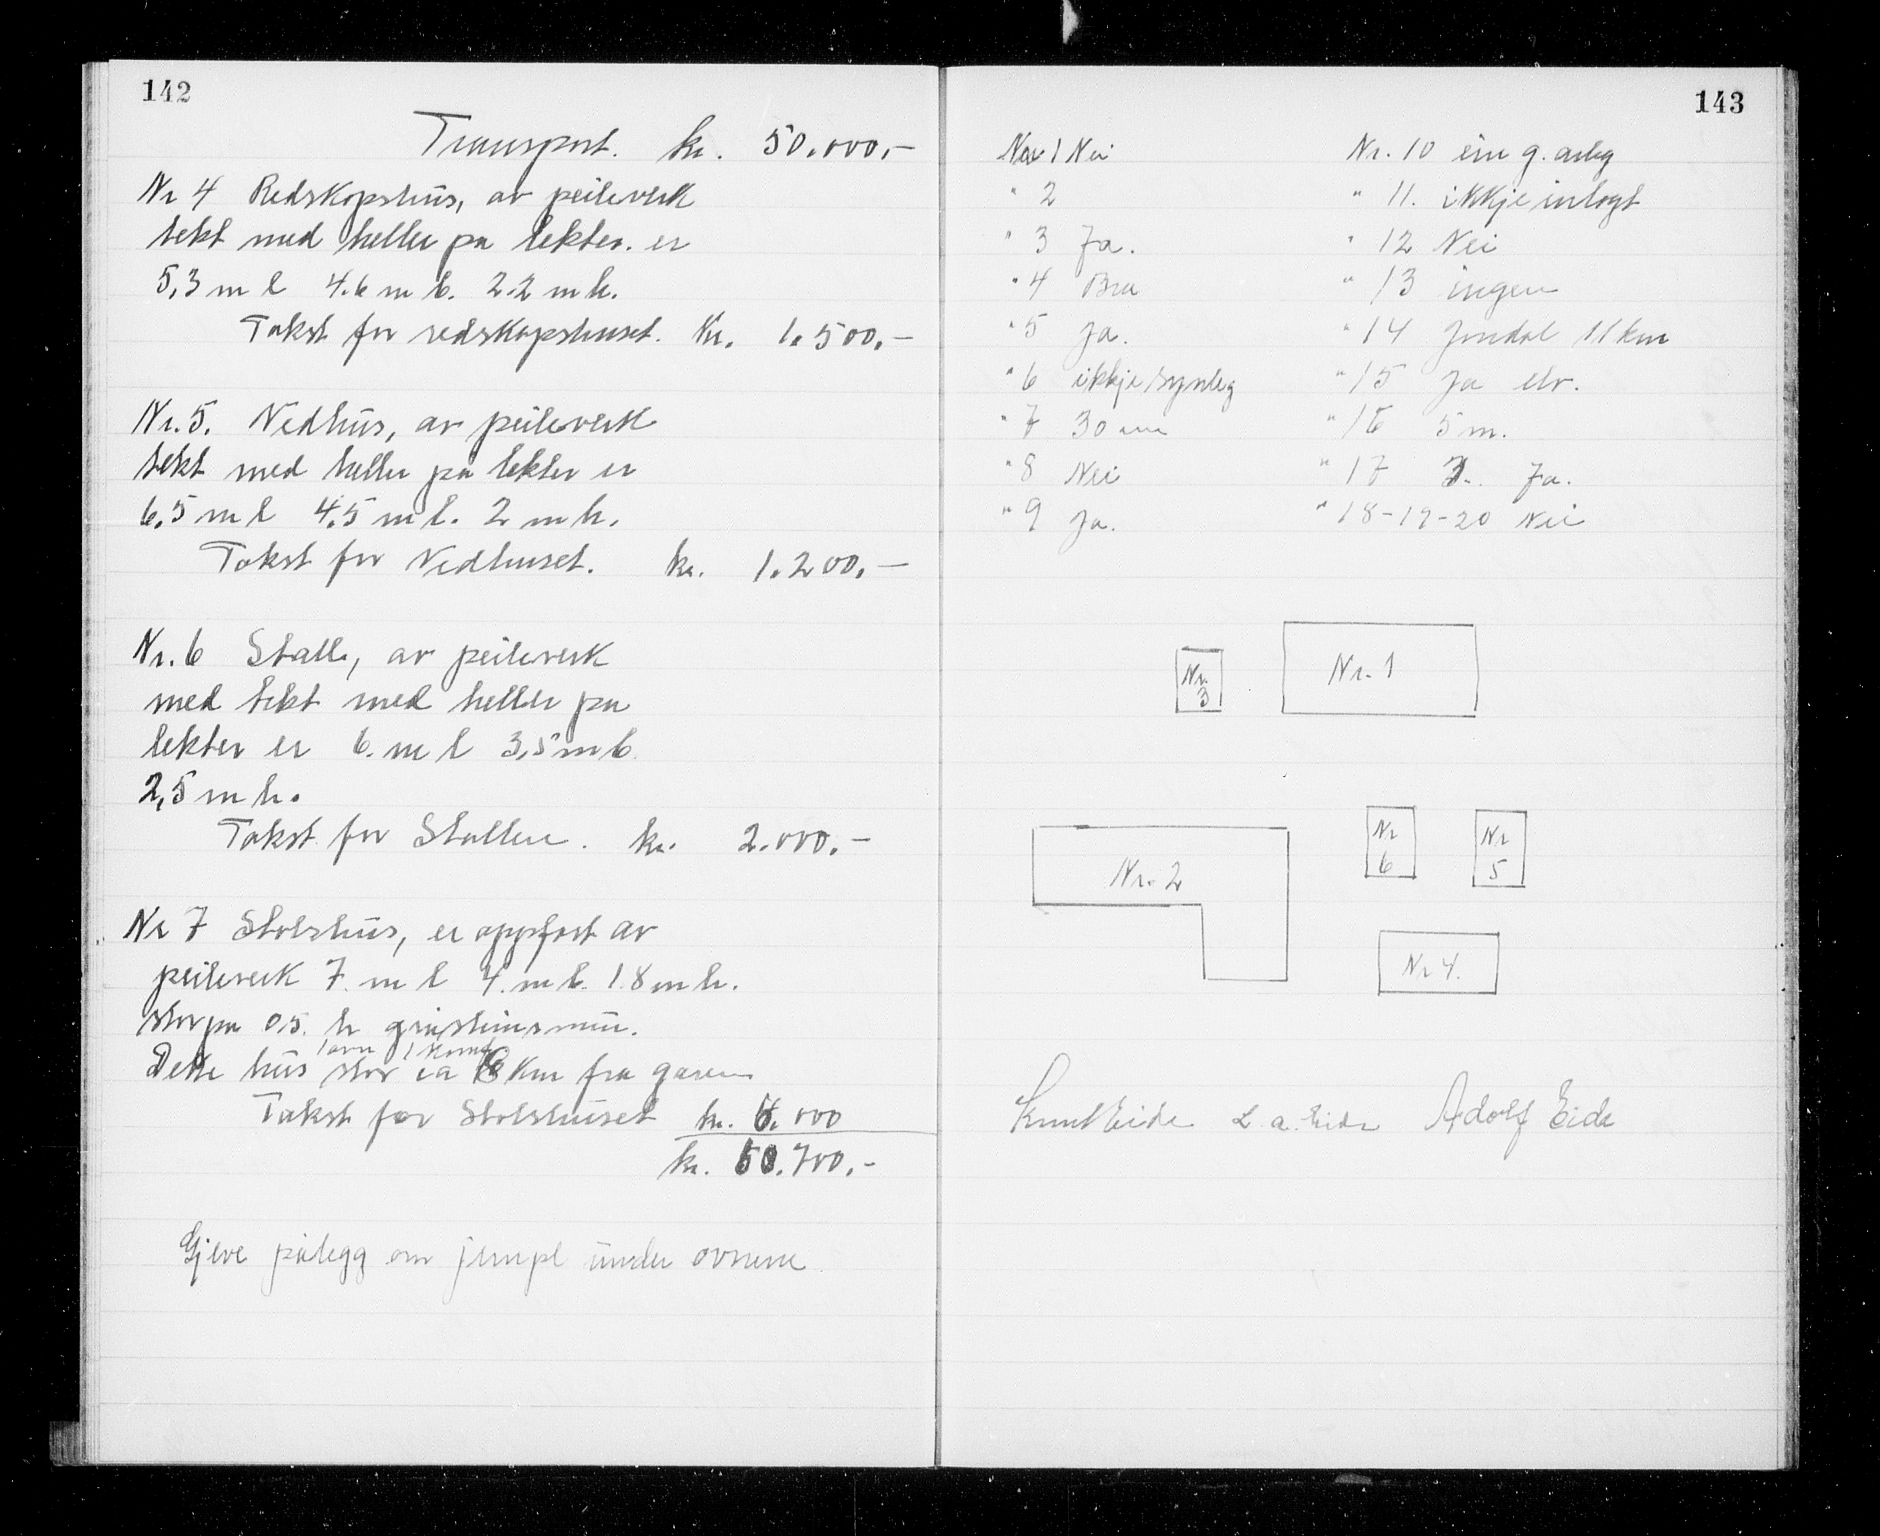 142
Transport. kr. 50.000,-
Nr 4 Redskapshus, av peileverk
tekt med heller på lekter. er
5,3 m l 4.6 m b. 2.2 m h.
Takst for redskapshuset. Kr. 1.500,-
Nr. 5. Vedhus, av peileverk
tekt med heller på lekter er
6,5 m l 4,5 m b. 2 m h.
Takst for Vedhuset. kr. 1.200,-
Nr. 6 Stall, av peileverk
med tekt med heller på
lekter er 6. m l 3,5 m b.
2,5 m h.
Takst for Stallen. kr. 2.000,-
Nr 7 Stølshus, er oppført av
peileverk 7. m l 4. m b. 1.8 m h.
står på 0.5. h gråsteinsmur.
1 ovn 1 komf
Dette hus står ca 8 km fra garen
Takst for Stølshuset kr. 6.000
kr. .700,-
Gjeve pålegg om jernpl under ovnene
143
Nr 1 Nei
" 2
" 3 Ja.
" 4 Bra
" 5 Ja.
" 6 ikkje synleg
" 7 30 cm
" 8 Nei
" 9 Ja.
Nr. 10 ein g. arleg
" 11. ikkje inlagt
" 12 Nei
" 13 ingen
" 14 Jondal 11 km
" 15 Ja elv.
" 16 5 m.
" 17 Ja.
" 18-19-20 Nei
Nr. 3
Nr. 1
Nr. 2
Nr 6
Nr 5
Nr 4.
Knut Eide L. A. Eide Adolf Eide